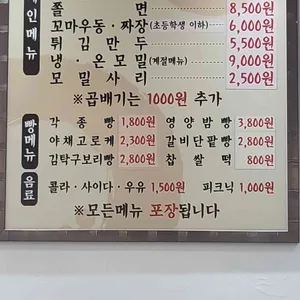 메인메뉴
쫄면 8,500원
꼬마우동·짜장(초등학생 이하) 6,000원
튀김만두 5,500원
냉·온모밀(계절메뉴) 9,000원
모밀사리 2,500원
※곱배기는 1000원 추가
빵메뉴
각종빵 1,800원 영양밤빵 3,800원
야채고로케 2,300원 갈비단팥빵 2,800원
김탁구보리빵 2,800원 찹쌀떡 800원
음료
콜라·사이다·우유 1,500원 피크닉 1,000원
※모든메뉴 포장됩니다